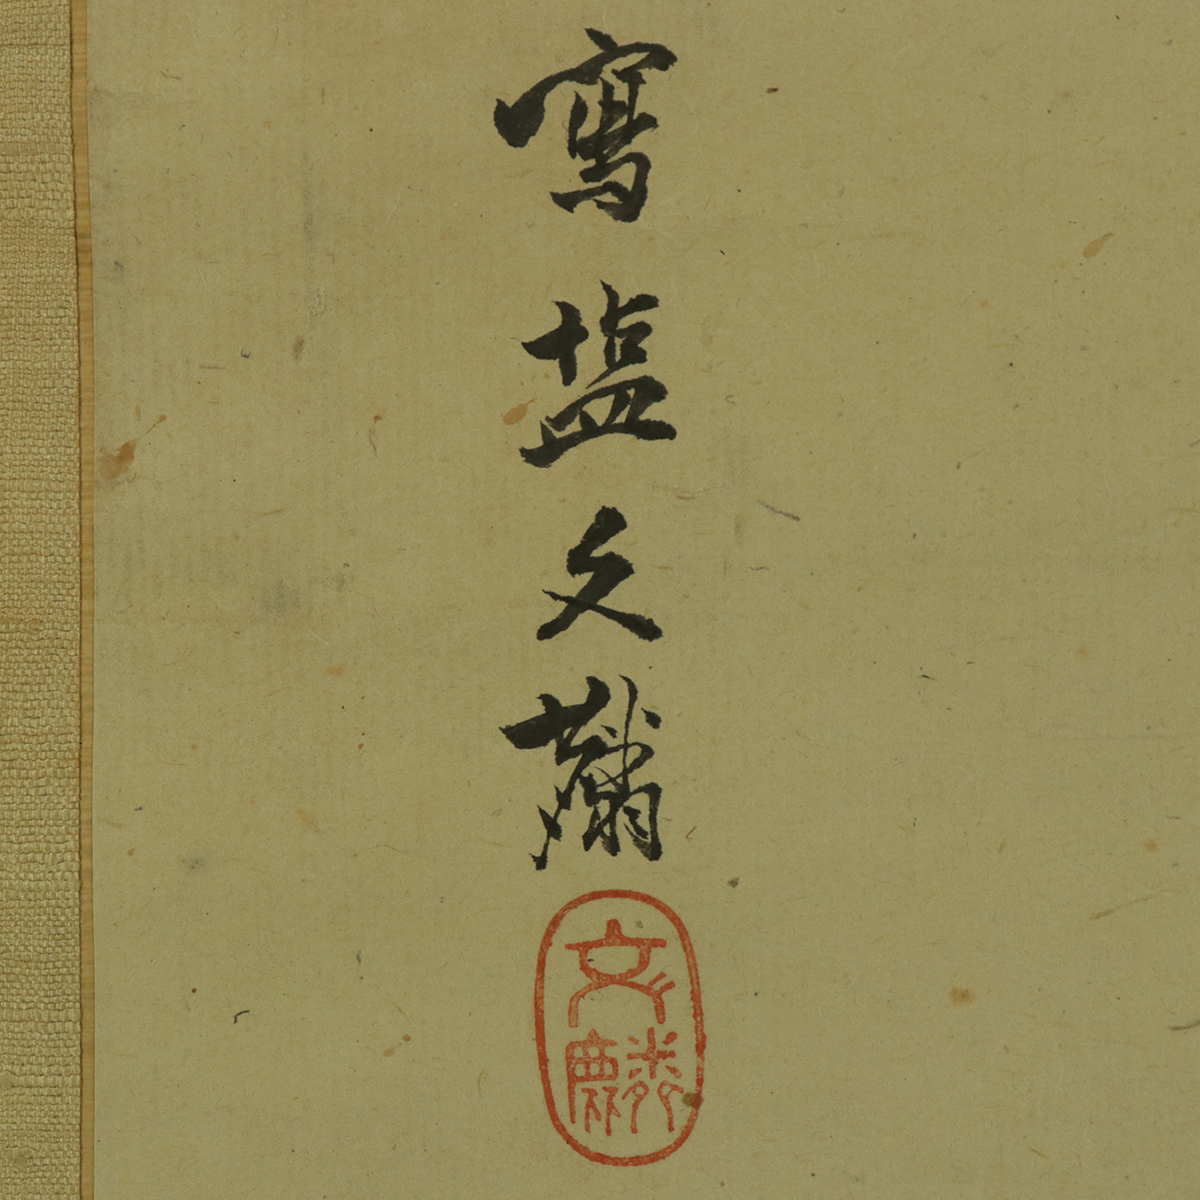 寫塩文麟
文麟